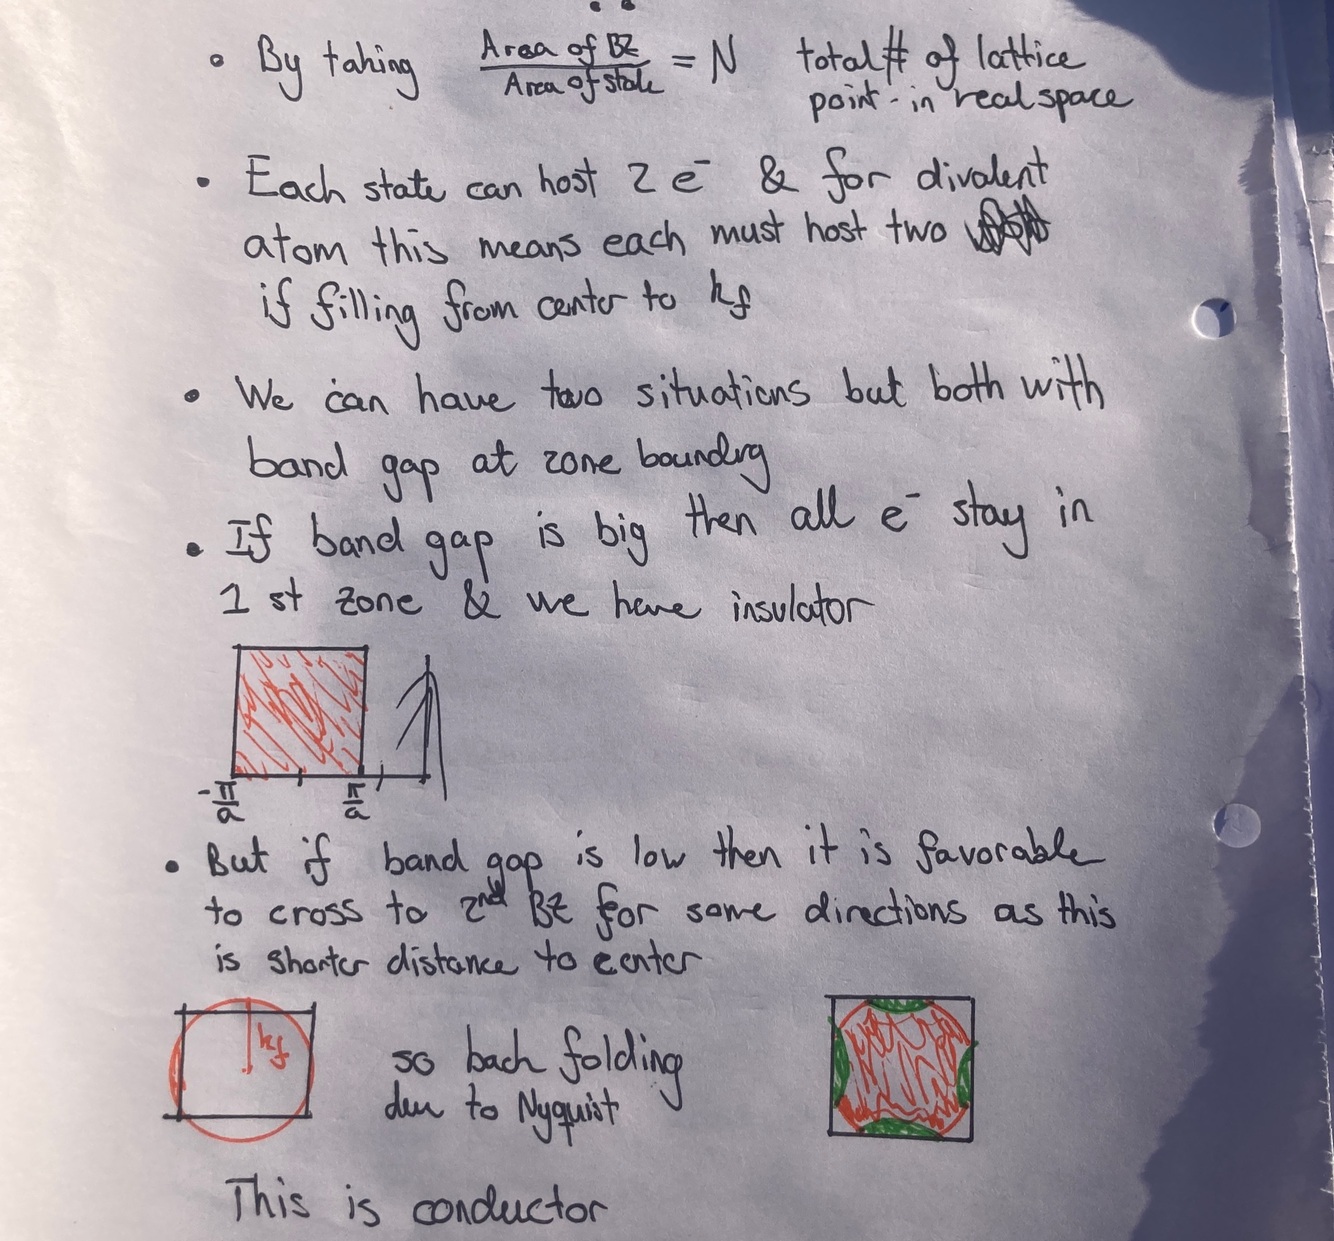 • By taking Area of BZ / Area of state = N total # of lattice
point - in real space
• Each state can host 2 e⁻ & for divalent
atom this means each must host two
if filling from center to kf
• We can have two situations but both with
band gap at zone boundary
• If band gap is big then all e⁻ stay in
1 st zone & we have insulator
-π/a π/a
• But if band gap is low then it is favorable
to cross to 2nd BZ for some directions as this
is shorter distance to center
kf
so back folding
due to Nyquist
This is conductor